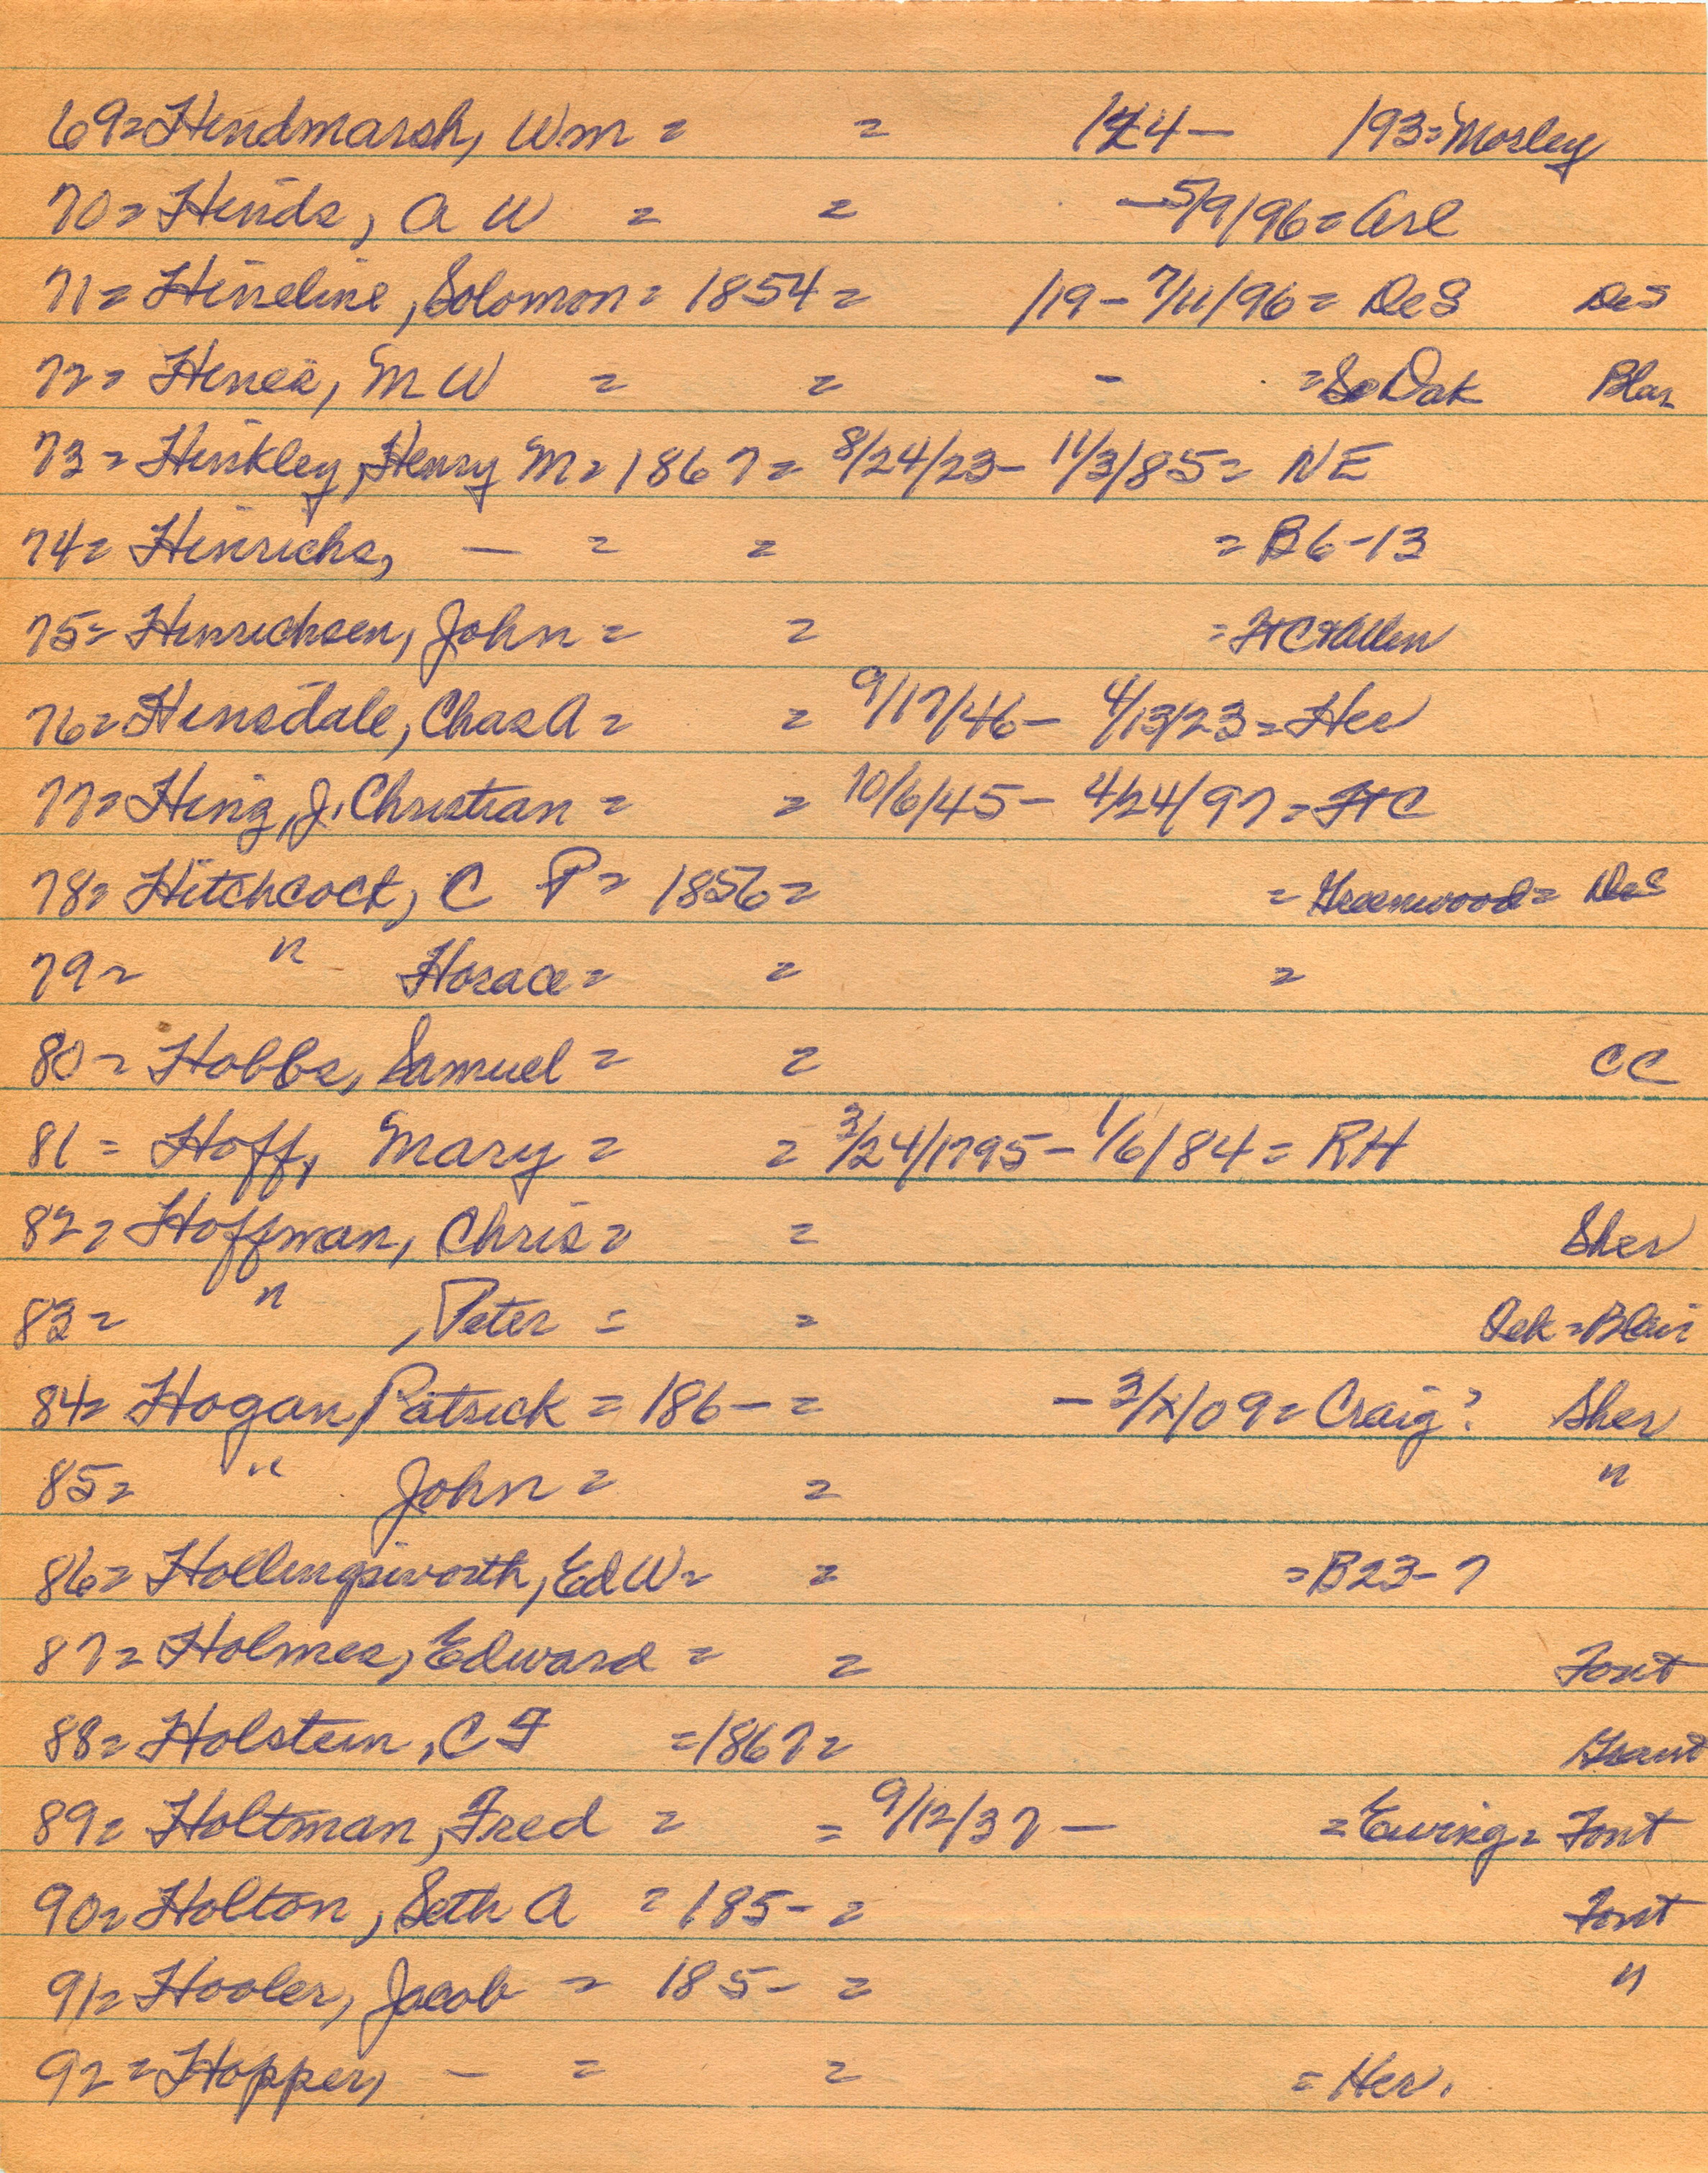 69= Hindmarsh, Wm = = 124 - /93 = Mosley
70= Hinds, A W = = -5/9/96= Arl
71= Hineline, Solomon = 1854 = /19 - 7/11/96 = DeS DeS
72= Hines, M W = = - = SoDak Blar
73= Hinkley, Henry M = 1867 = 8/24/23 - 11/3/85 = NE
74= Hinrichs, - = = = B6-13
75= Hinrichsen, John = = = FtC Allen
76= Hinsdale, Chas A = = 9/17/46 - 4/13/23 = Her
77= Hinz, J. Christian = = 10/6/45 - 4/24/97 = FtC
78= Hitchcock, C P = 1856 = = Greenwood = DeS
79= " Horace = = =
80= Hobbs, Samuel = = CC
81= Hoff, Mary = = 3/24/1795 - 1/6/84 = RH
82= Hoffman, Chris = = Sher
83= " , Peter = = Tek = Blair
84= Hogan, Patrick = 186- = - 3/x/09 = Craig? Sher
85= " John = = "
86= Hollingsworth, Ed W = = = B23-7
87= Holmes, Edward = = Font
88= Holstein, C F = 1867 = Grant
89= Holtman, Fred = = 9/12/37 - = Ewing = Font
90= Holton, Seth A = 185- = Font
91= Hooler, Jacob = 185- = "
92= Hopper, - = = = Her.